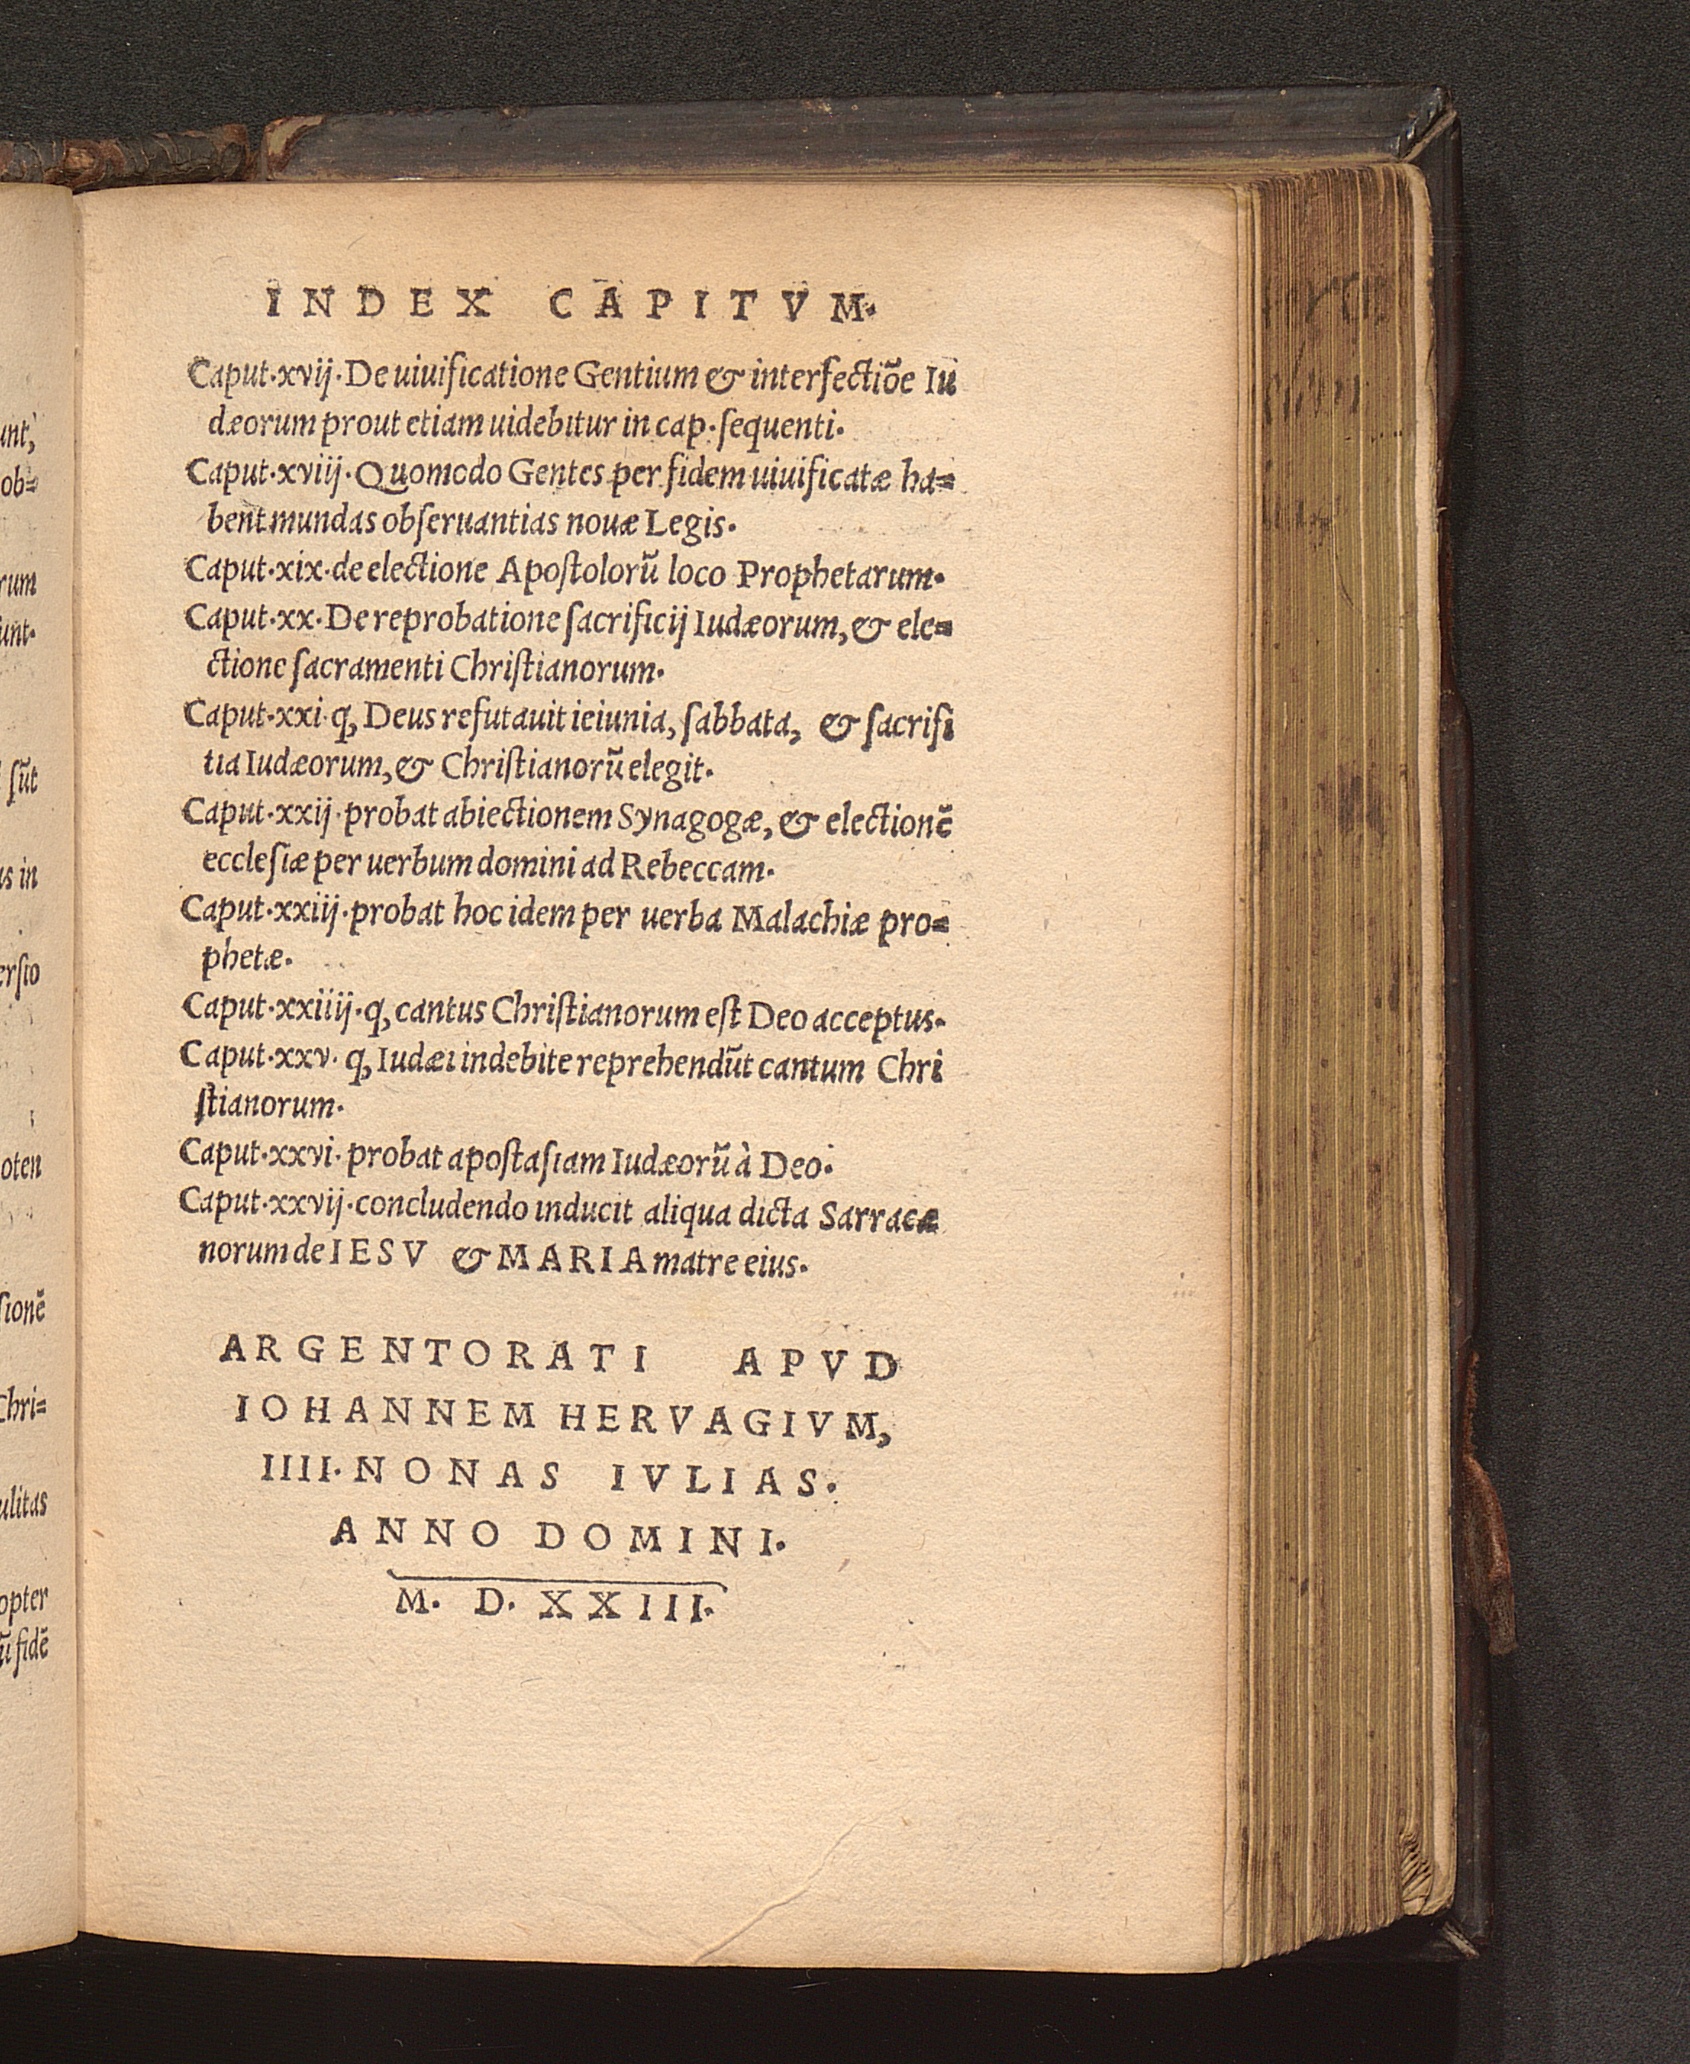 INDEX CAPITVM.
Caput.xvij. De uiuificatione Gentium & interfectiõe Iu
dæorum prout etiam uidebitur in cap. sequenti.
Caput.xviij. Quomodo Gentes per fidem uiuificatæ ha=
bent mundas obseruantias nouæ Legis.
Caput.xix. de electione Apostolorũ loco Prophetarum.
Caput.xx. De reprobatione sacrificij Iudæorum, & ele=
ctione sacramenti Christianorum.
Caput.xxi. ꝙ Deus refutauit ieiunia, sabbata, & sacrifi
tia Iudæorum, & Christianorũ elegit.
Caput.xxij. probat abiectionem Synagogæ, & electionẽ
ecclesiæ per uerbum domini ad Rebeccam.
Caput.xxiij. probat hoc idem per uerba Malachiæ pro=
phetæ.
Caput.xxiiij. ꝙ cantus Christianorum est Deo acceptus.
Caput.xxv. ꝙ Iudæi indebite reprehendũt cantum Chri
stianorum.
Caput.xxvi. probat apostasiam Iudæorũ à Deo.
Caput.xxvij. concludendo inducit aliqua dicta Sarracæ
norum de IESV & MARIA matre eius.
ARGENTORATI APVD
IOHANNEM HERVAGIVM,
IIII. NONAS IVLIAS.
ANNO DOMINI.
M. D. XXIII.